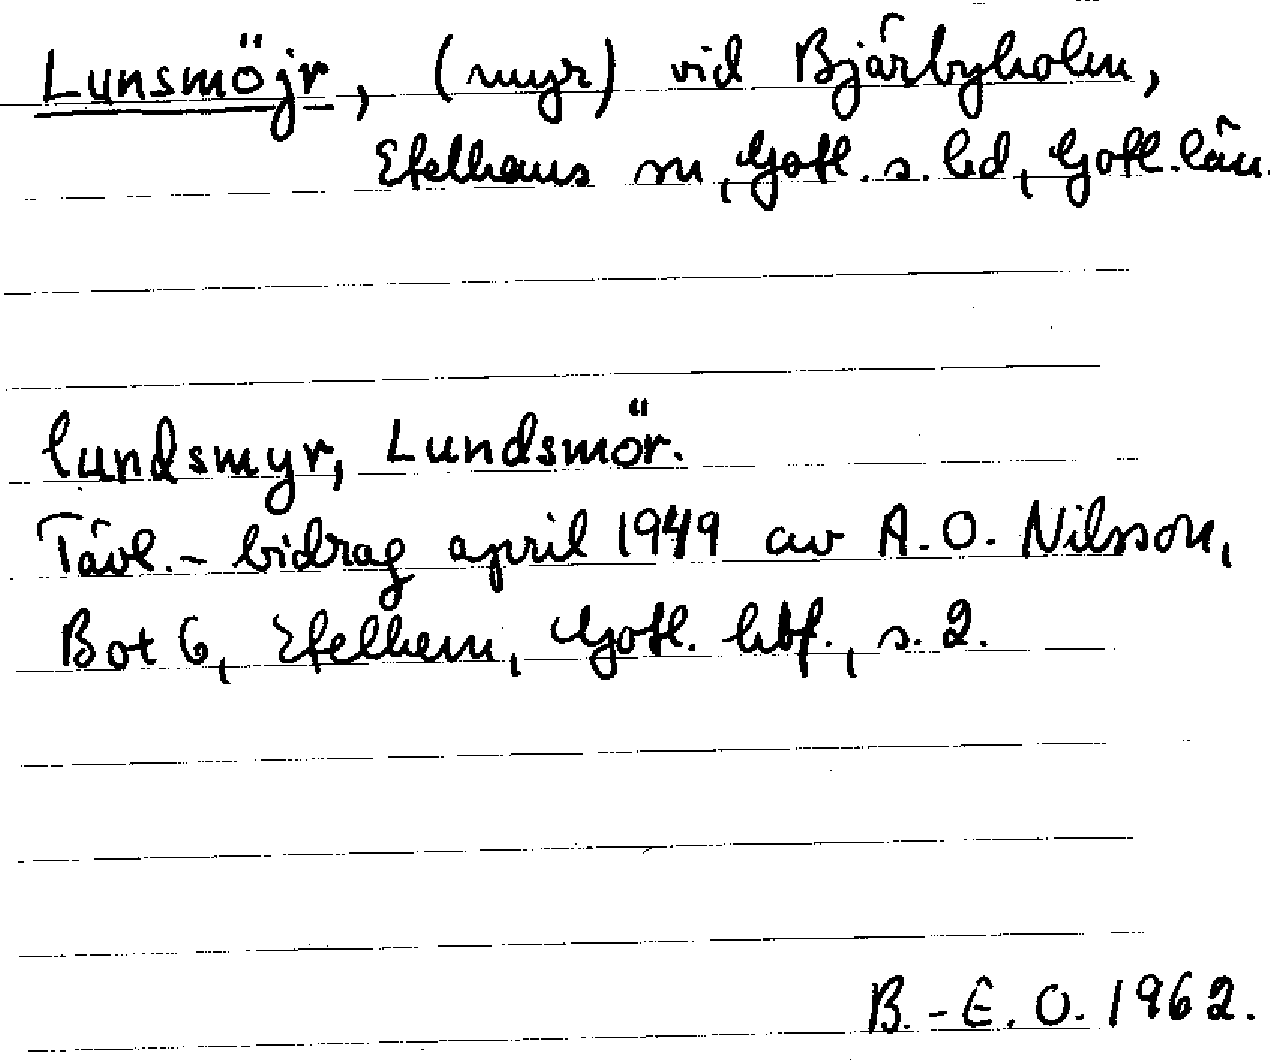 Lunsmöjr, (myr) vid Bjärbyholm,
Etelhems sn, Gotl. s. hd, Gotl. län.
lundsmyr, Lundsmör.
Tävl.- bidrag april 1949 av A. O. Nilsson,
Bot 6, Etelhem, Gotl. hbf., s. 2.
B.-E. O. 1962.